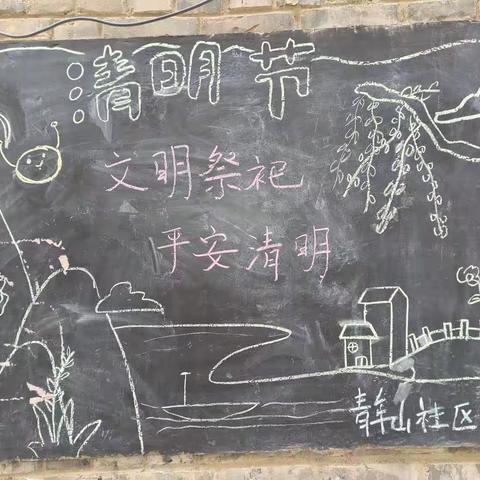 清明节
文明祭祀
平安清明
青年山社区